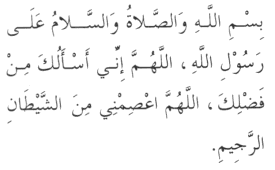 بِسْمِ اللَّـهِ وَالصَّلَاةُ وَالسَّـــلَامُ عَلَـــى
رَسُوْلِ اللَّهِ ، اللَّهُـمَّ إِنِّـي أَسْـأَلُكَ مِـنْ
فَضْلِكَ ، اللَّهُمَّ اعْصِمْنِي مِنَ الشَّيْطَانِ
الرَّجِيمِ.